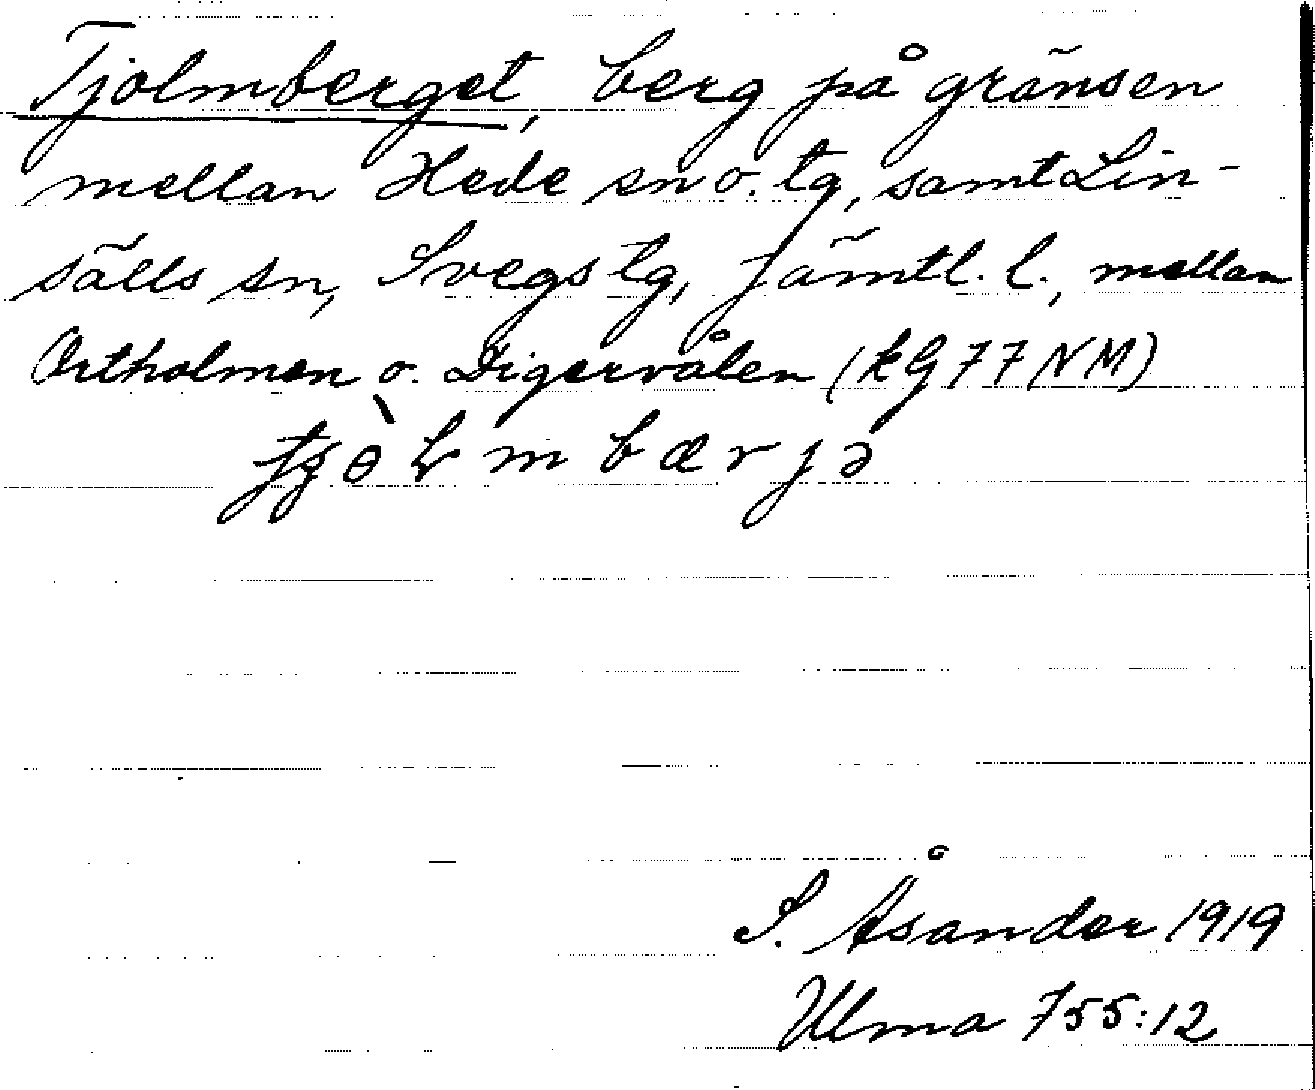 Tjolmberget, berg på gränsen
mellan Hede sn o. tg, samt Lin-
sälls sn, Svegs tg, Jämtl. l., mellan
Ortholmen o. Digervålen (kG 77 NM)
m b æ r j ə
S. Åsander 1919
Ulma 755:12